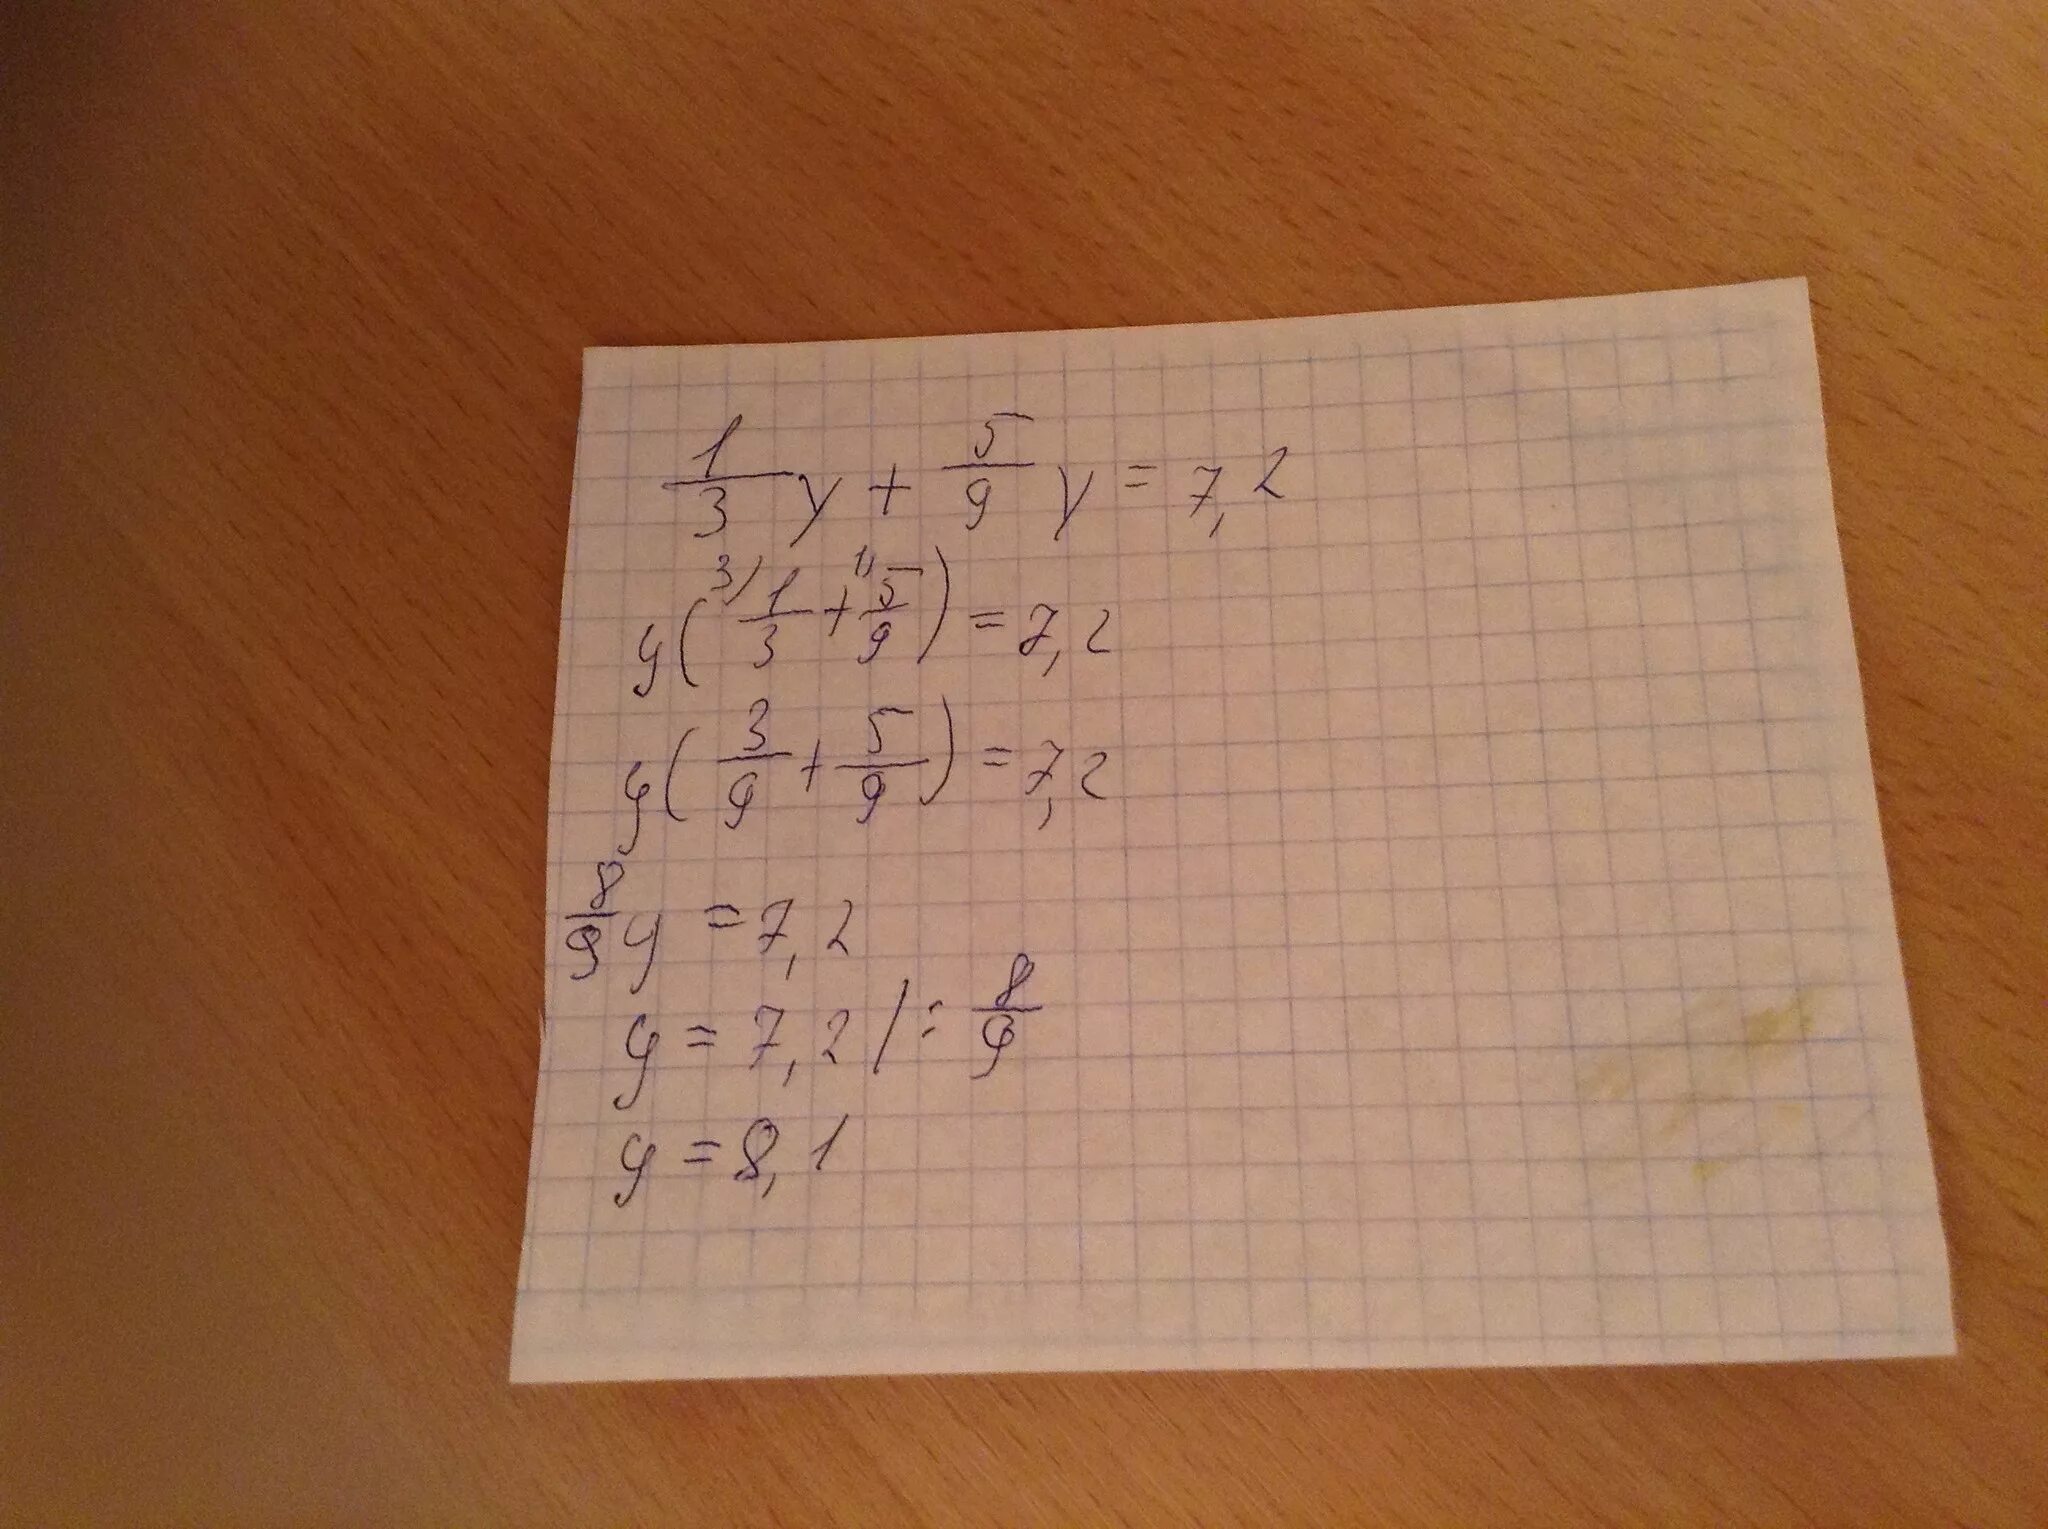 1/3 y + 5/9 y = 7,2
y( 3) 1/3 + 1) 5/9 ) = 7,2
y( 3/9 + 5/9 ) = 7,2
8/9 y = 7,2
y = 7,2 / : 8/9
y = 8,1